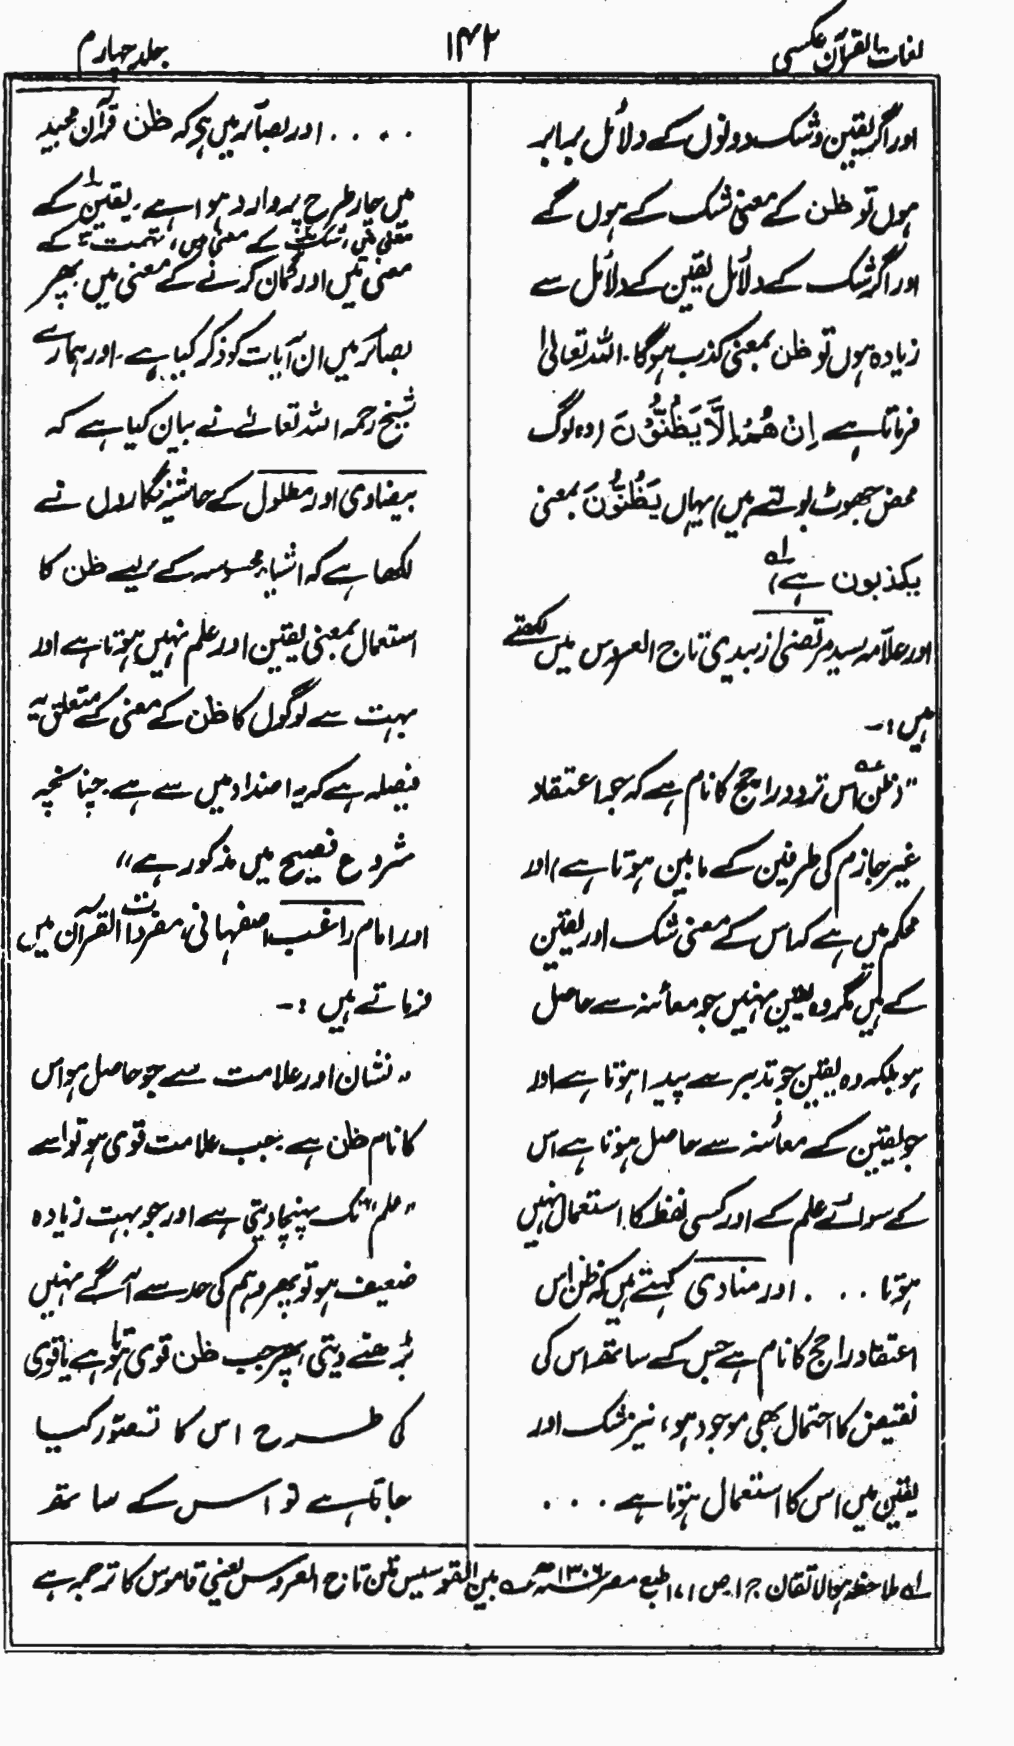 لغات القرآن عکسی
۱۴۲
جلد چہارم
اور اگر یقین و شک دونوں کے دلائل برابر
ہوں تو ظن کے معنی شک کے ہوں گے
اور اگر شک کے دلائل یقین کے دلائل سے
زیادہ ہوں تو ظن بمعنی کذب ہوگا۔ اللہ تعالیٰ
فرماتا ہے اِنْ هُمْ اِلَّا يَظُنُّوْنَ (وہ لوگ
محض جھوٹ بولتے ہیں) یہاں يَظُنُّوْنَ بمعنی
یکذبون ہے) لہ
اور علامہ سید مرتضیٰ زبیدی تاج العروس میں لکھتے
ہیں :۔
"(ظن عہ اس تردد راجح کا نام ہے کہ جو اعتقاد
غیر جازم کی طرفین کے مابین ہوتا ہے) اور
محکم میں ہے کہ اس کے معنی شک اور یقین
کے ہیں مگر وہ یقین نہیں جو معائنہ سے حاصل
ہو بلکہ وہ یقین جو تدبر سے پیدا ہوتا ہے اور
جو یقین کے معائنہ سے حاصل ہوتا ہے اس
کے سوائے علم کے اور کسی لفظ کا استعمال نہیں
ہوتا . . . . اور مناوی کہتے ہیں کہ ظن اس
اعتقاد راجح کا نام ہے جس کے ساتھ اس کی
نقیض کا احتمال بھی موجود ہو، نیز شک اور
یقین میں اس کا استعمال ہوتا ہے . . .
. . . . اور بصائر میں ہے کہ ظن قرآن مجید
میں چار طرح پر وارد ہوا ہے۔ یقین ۱ کے
معنی میں، شک ۲ کے معنی میں، تہمت ۳ کے
معنی میں اور گمان ۴ کرنے کے معنی میں پھر
بصائر میں ان آیات کو ذکر کیا ہے۔ اور ہمارے
شیخ رحمہ اللہ تعالےٰ نے بیان کیا ہے کہ
بیضاوی اور مطول کے حاشیہ نگاروں نے
لکھا ہے کہ اشیاء محسوسہ کے لیے ظن کا
استعمال بمعنی یقین اور علم نہیں ہوتا ہے اور
بہت سے لوگوں کا ظن کے معنی کے متعلق یہ
فیصلہ ہے کہ یہ اضداد میں سے ہے۔ چنانچہ
شروع فصیح میں مذکور ہے"
اور امام راغب اصفہانی، مفردات القرآن میں
فرماتے ہیں :۔
" نشان اور علامت سے جو حاصل ہو اس
کا نام ظن ہے۔ جب علامت قوی ہو تو اسے
"علم" تک پہنچا دیتی ہے اور جو بہت زیادہ
ضعیف ہو تو پھر وہم کی حد سے آگے نہیں
بڑھنے دیتی، پھر جب ظن قوی ہوتا ہے یا قوی
کی طرح اس کا تصور کیا
جاتا ہے تو اس کے ساتھ
لہ ملاحظہ ہو الاتقان ج ۱ ص ۱۷۱ طبع مصر ۱۳۰۶ھ عہ بین القوسین متن تاج العروس یعنی قاموس کا ترجمہ ہے